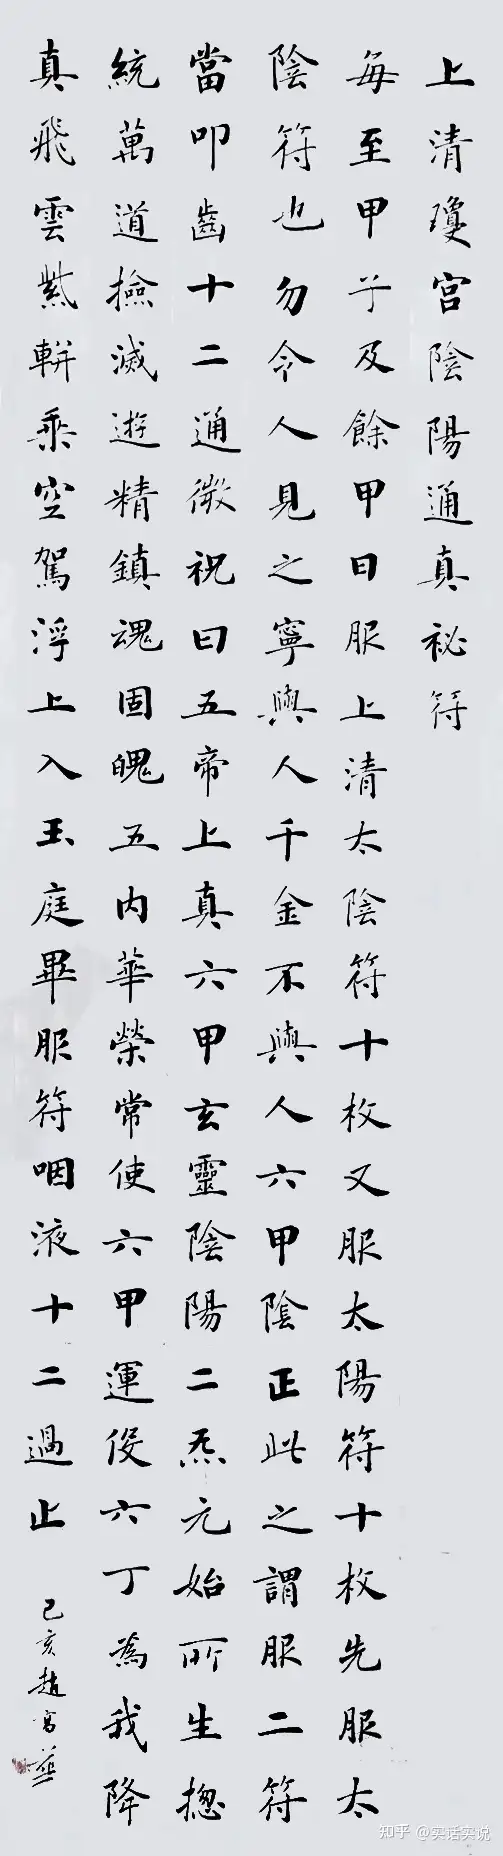 上清瓊宮陰陽通真祕符
每至甲子及餘甲日服上清太陰符十枚又服太陽符十枚先服太
陰符也勿令人見之寧與人千金不與人六甲陰正此之謂服二符
當叩齒十二通微祝曰五帝上真六甲玄靈陰陽二炁元始所生揔
統萬道撿滅遊精鎮魂固魄五內華榮常使六甲運役六丁為我降
真飛雲紫軿乘空駕浮上入玉庭畢服符咽液十二過止
己亥趙
知乎 @实话实说